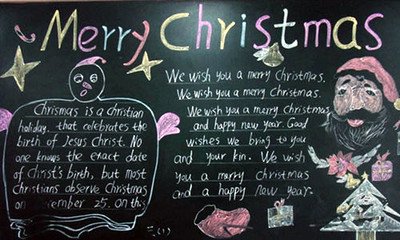 Merry Christmas
Chrismas is a christian
holiday that celebrates the
birth of Jesus Christ. No
one knows the exact date
of Christ's birth, but most
christians observe Christmas
on 25. on this
We wish you a merry Christmas.
We wish you a merry Christmas.
We wish you a merry Christmas
and happy new year. Good
wishes we bring to you
and your kin. We wish
you a merry christmas
and a happy new year.